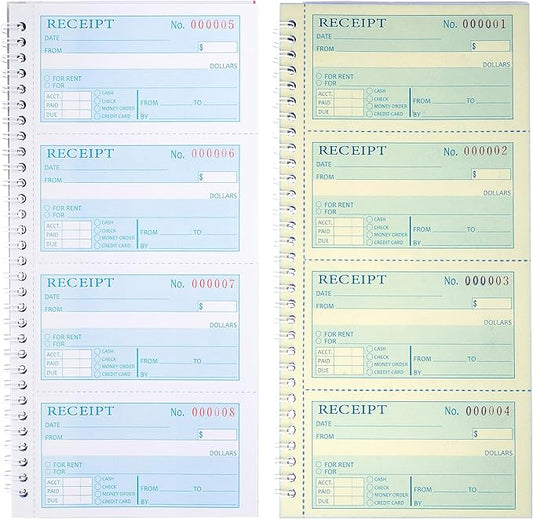 RECEIPT No. 000005
DATE
FROM $
DOLLARS
FOR RENT
FOR
ACCT. CASH
PAID CHECK FROM TO
DUE MONEY ORDER
CREDIT CARD BY
RECEIPT No. 000006
DATE
FROM $
DOLLARS
FOR RENT
FOR
ACCT. CASH
PAID CHECK FROM TO
DUE MONEY ORDER
CREDIT CARD BY
RECEIPT No. 000007
DATE
FROM $
DOLLARS
FOR RENT
FOR
ACCT. CASH
PAID CHECK FROM TO
DUE MONEY ORDER
CREDIT CARD BY
RECEIPT No. 000008
DATE
FROM $
DOLLARS
FOR RENT
FOR
ACCT. CASH
PAID CHECK FROM TO
DUE MONEY ORDER
CREDIT CARD BY
RECEIPT No. 000001
DATE
FROM $
DOLLARS
FOR RENT
FOR
ACCT. CASH
PAID CHECK FROM TO
DUE MONEY ORDER
CREDIT CARD BY
RECEIPT No. 000002
DATE
FROM $
DOLLARS
FOR RENT
FOR
ACCT. CASH
PAID CHECK FROM TO
DUE MONEY ORDER
CREDIT CARD BY
RECEIPT No. 000003
DATE
FROM $
DOLLARS
FOR RENT
FOR
ACCT. CASH
PAID CHECK FROM TO
DUE MONEY ORDER
CREDIT CARD BY
RECEIPT No. 000004
DATE
FROM $
DOLLARS
FOR RENT
FOR
ACCT. CASH
PAID CHECK FROM TO
DUE MONEY ORDER
CREDIT CARD BY